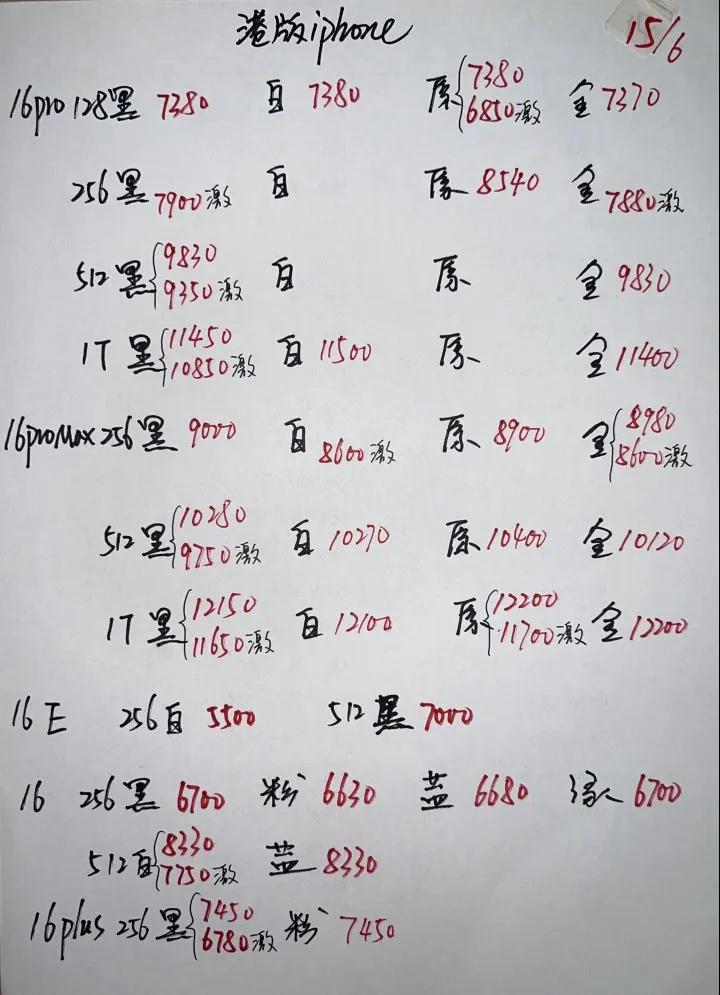 港版iphone 15/6
16pro 128黑 7380 白 7380 原{7380 6850激 金 7370
256黑 7900激 白 原 8540 金 7880激
512黑{9830 9350激 白 原 金 9830
1T 黑{11450 10850激 白 11500 原 金 11400
16proMax 256黑 9000 白 8600激 原 8900 金{8980 8600激
512黑{10280 9750激 白 10270 原 10400 金 10120
1T 黑{12150 11650激 白 12100 原{12200 11700激 金 12200
16E 256白 5500 512黑 7000
16 256黑 6700 粉 6630 蓝 6680 绿 6700
512白{8330 7750激 蓝 8330
16plus 256黑{7450 6780激 粉 7450